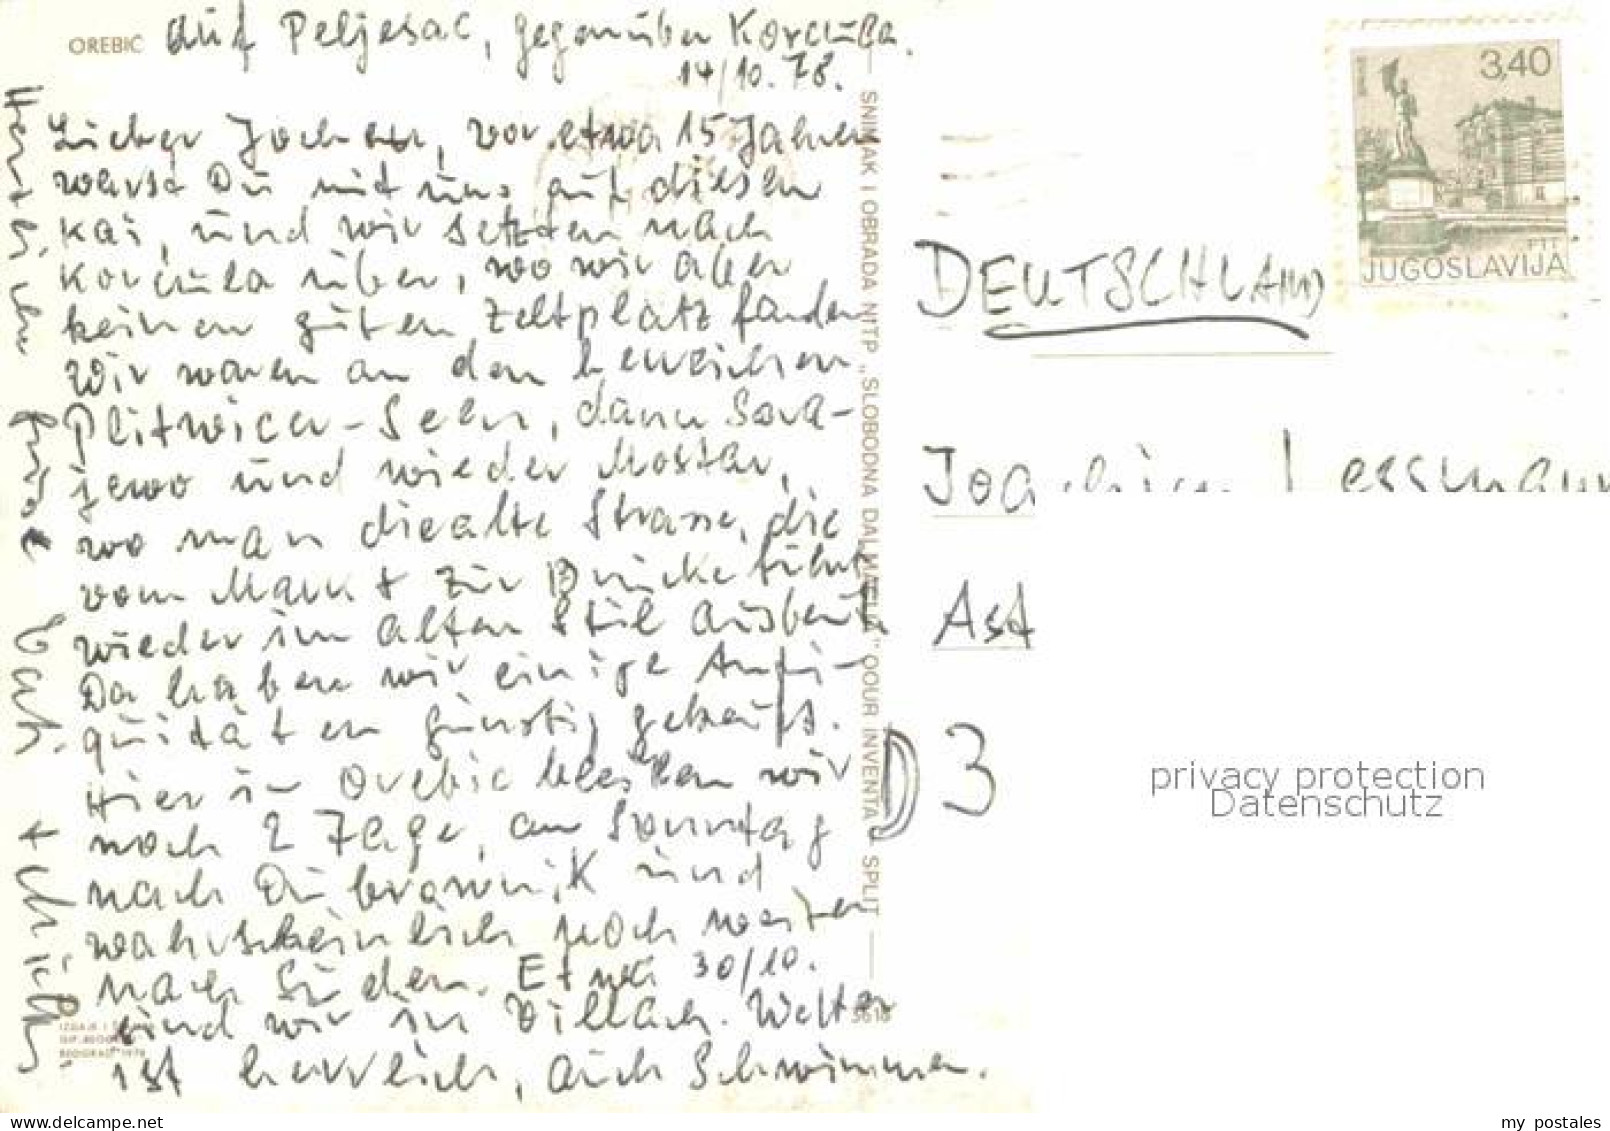 OREBIĆ auf Peljesac, gegenüber Korcula.
14/10.78.
Lieber Jochen, vor etwa 15 Jahren
warst Du mit uns auf diesem
Kai, und wir setzten nach
Korcula über, wo wir aber
keinen guten Zeltplatz fanden
Wir waren an den
Plitwicer-Seen, dann Sara-
jewo und wieder Mostar,
wo man die alte Strasse, die
vom Markt zur Brücke führt
wieder im alten Stil ausbaut
Da haben wir einige Anti-
quitäten günstig gekauft.
Hier in Orebic bleiben wir
noch 2 Tage, am Sonntag
nach Dubrownik und
wahrscheinlich noch weiter
nach Süden. Etwa 30/10.
sind wir in Villach. Wetter
ist herrlich, auch Schwimmen.
Herzlichen Grüße
SNIMAK I OBRADA NITP „SLOBODNA DALMACIJA" OOUR INVENTA SPLIT
BEOGRAD 1978
3,40
PTT
JUGOSLAVIJA
DEUTSCHLAND
Joachim Lessmann
Ast
D 3
privacy protection
Datenschutz
www.delcampe.net
my_postales